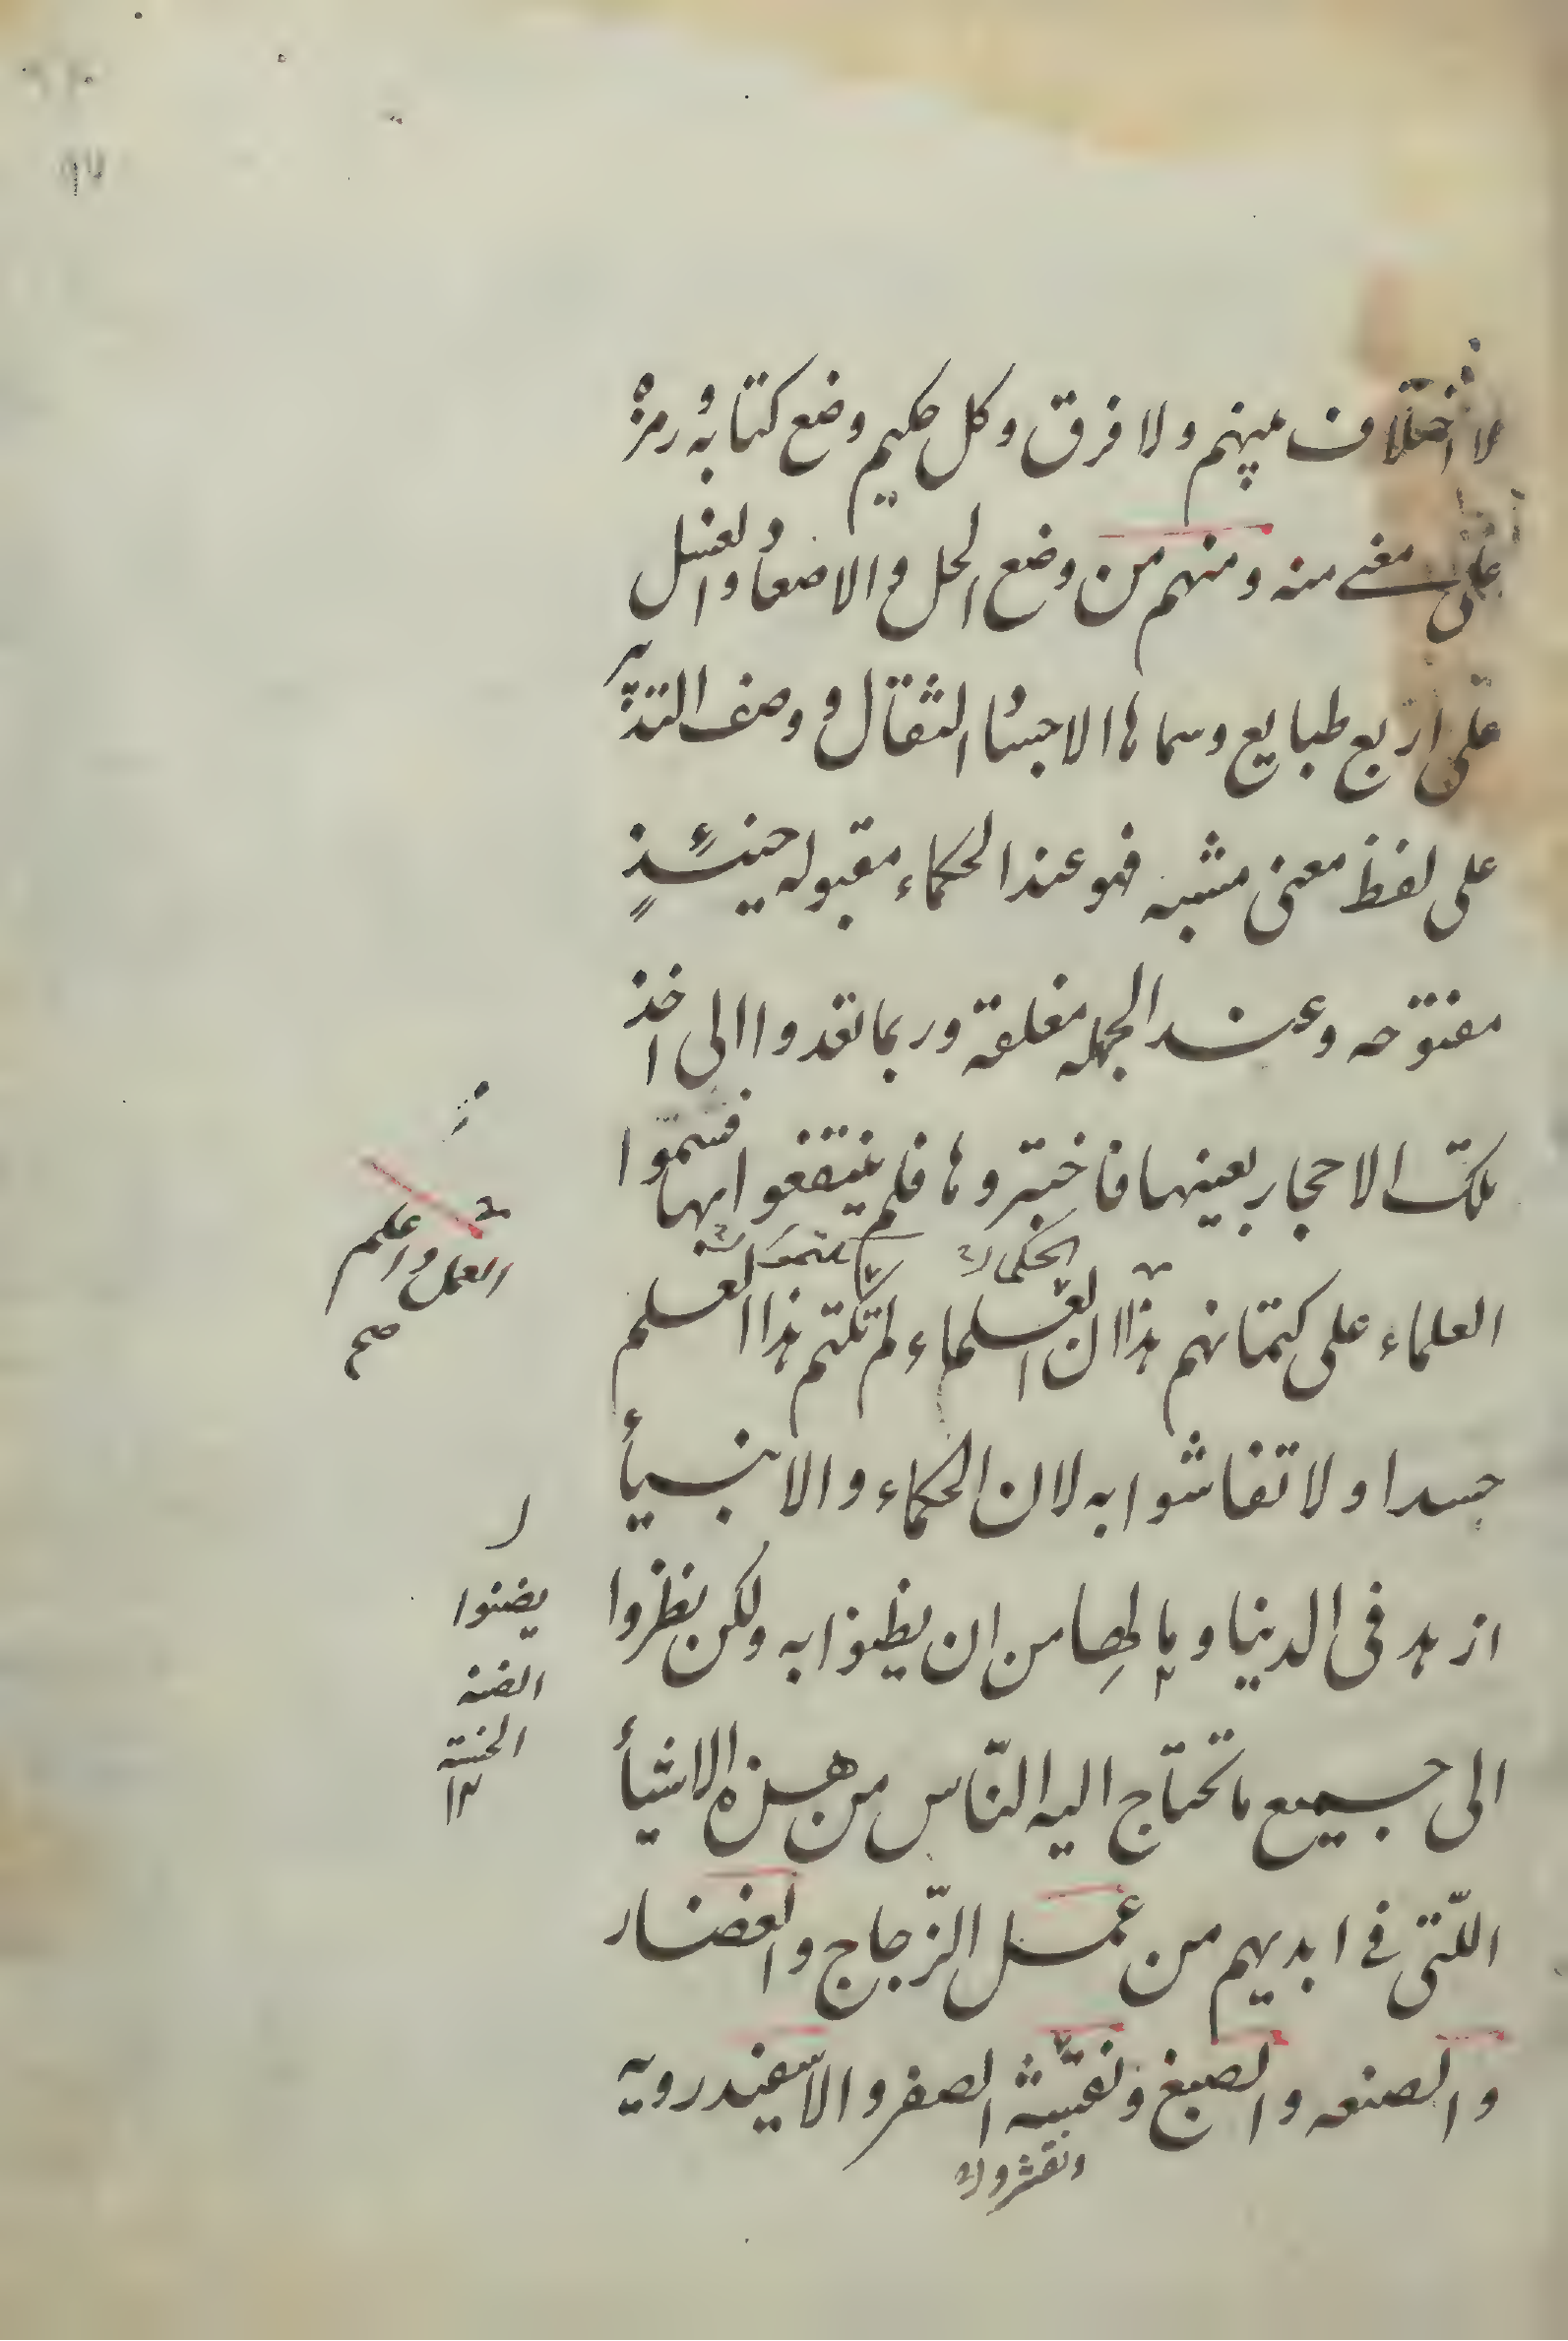 لا اختلاف بينهم ولا فرق وكل حكيم وضع كتابه ورمزه
على معنى منه ومنهم من وضع الحل والاصعاد والغسل
على اربع طبايع وسماها الاجساد الثقال ووصف التدبير
على لفظ معنى مشبه فهو عند الحكماء مقبوله حينئذٍ
مفتوحه وعند الجهله مغلقة وربما تعدوا الى اخذ
تلك الاحجار بعينها فاختبروها فلم ينتفعوا بها فسموا
العلماء على كتمانهم هذا لان العلماء لم تكتم هذا العلم
حسدا ولا تفاشوا به لان الحكماء والانبياء
ازهد فى الدنيا وما لها من ان يظنوا به ولكن نظروا
الى جميع ما تحتاج اليه النّاس من هذه الاشيأ
اللّتى فى ايديهم من عمل الزّجاج والغضار
والصنعه والصبغ و الصفر والاسفيدرويه
الحكما
العمل واعلم
صح
يضنوا
الضنه
الخسة
١٢
ونقشروا